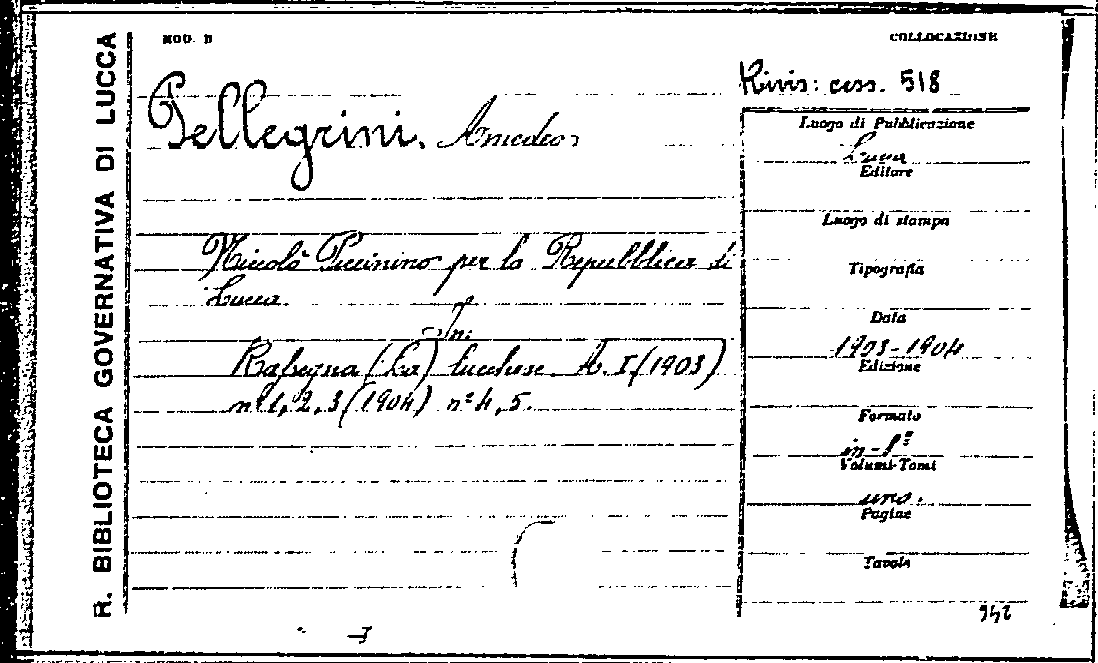 R. BIBLIOTECA GOVERNATIVA DI LUCCA
MOD. B
COLLOCAZIONE
Rivis: cass. 518
Pellegrini, Amedeo
Niccolò Piccinino per la Repubblica di
Lucca.
In:
Rassegna (La) lucchese. A. I. (1903)
nⁱ 1, 2, 3 (1904) nⁱ 4, 5.
Luogo di Pubblicazione
Lucca
Editore
Luogo di stampa
Tipografia
Data
1903-1904
Edizione
Formato
in-8º
Volumi-Tomi
uno.
Pagine
Tavole